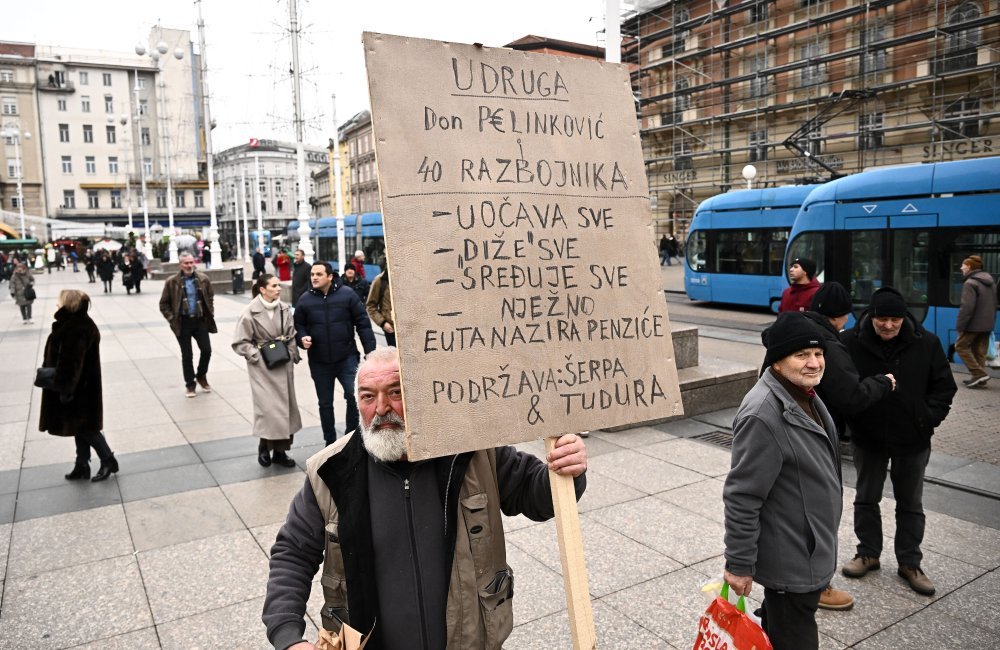 UDRUGA
Don P€LINKOVIĆ
I
40 RAZBOJNIKA
- UOČAVA SVE
- „DIŽE" SVE
- „SREĐUJE SVE
- NJEŽNO
EUTANAZIRA PENZIĆE
PODRŽAVA: ŠERPA
& TUDURA
SINGER
SINGER